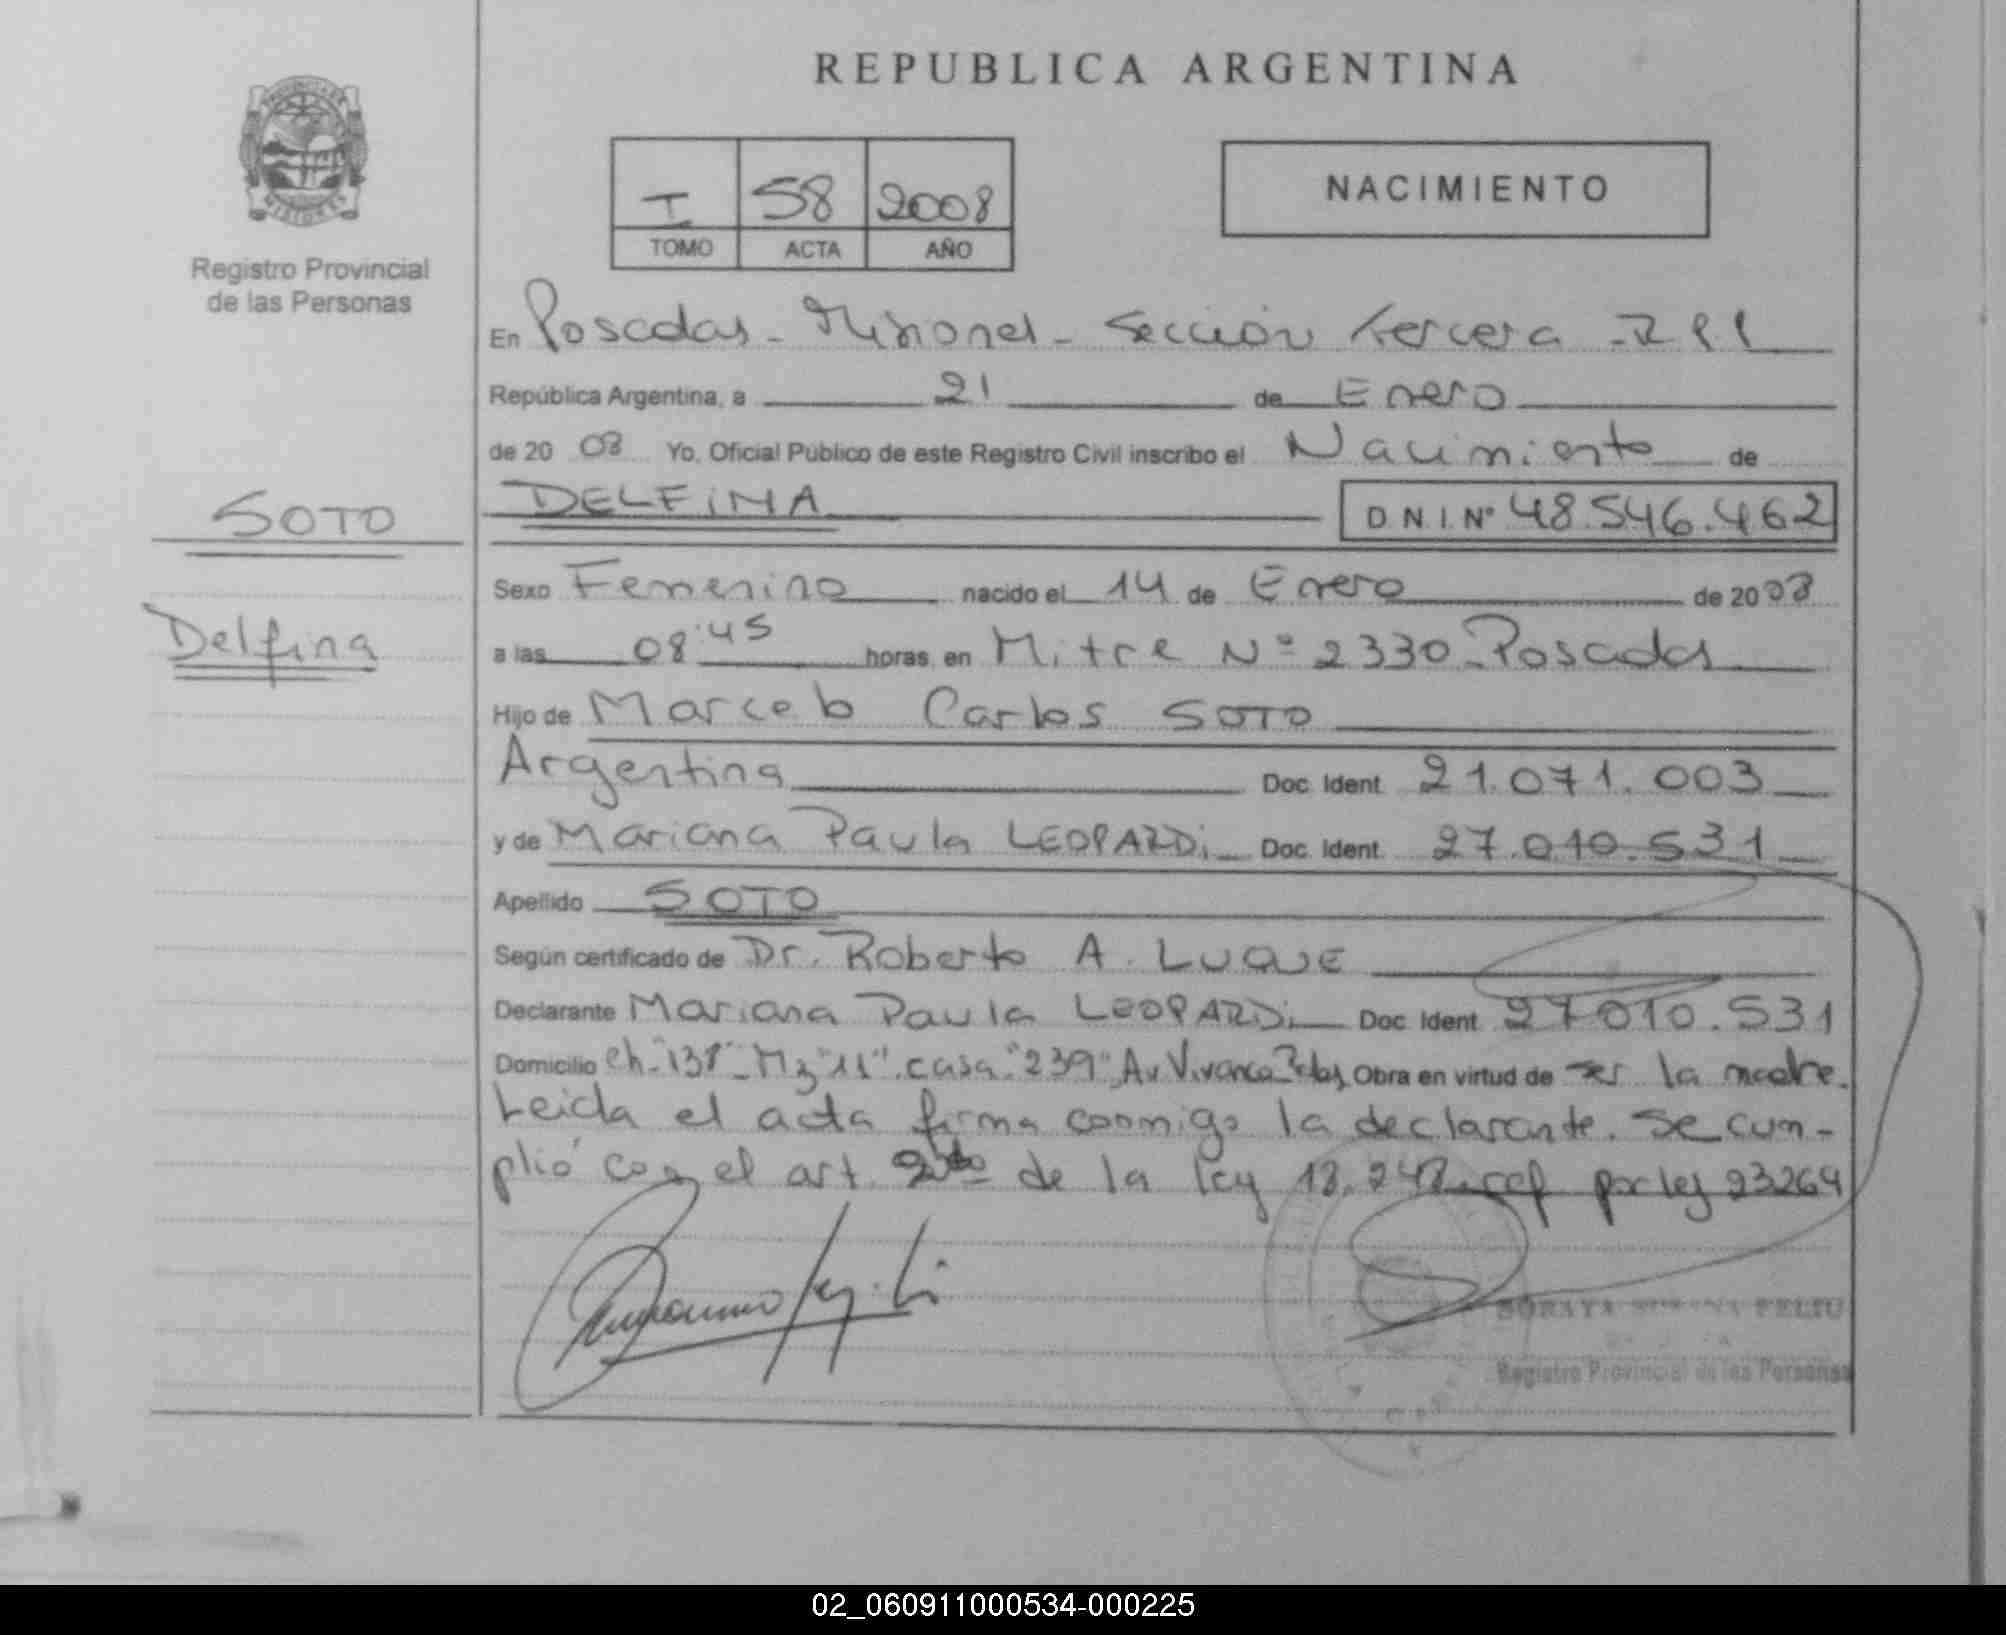 REPUBLICA ARGENTINA
NACIMIENTO
I 58 2008
TOMO ACTA AÑO
MISIONES
Registro Provincial
de las Personas
SOTO
Delfina
En Posadas - Misiones - Sección tercera - R P P
República Argentina, a 21 de Enero
de 2008 Yo, Oficial Público de este Registro Civil inscribo el Nacimiento de
DELFINA D.N.I. Nº 48.546.462
Sexo Femenino nacido el 14 de Enero de 2008
a las 08:45 horas, en Mitre Nº 2330 - Posadas
Hijo de Marcelo Carlos SOTO
Argentina Doc. Ident. 21.071.003
y de Mariana Paula LEOPARDi Doc. Ident. 27.010.531
Apellido SOTO
Según certificado de Dr. Roberto A. LUQUE
Declarante Mariana Paula LEOPARDi Doc. Ident. 27010.531
Domicilio Ch-"138"-Mz"11".casa"239", Av Vivanco Obra en virtud de ser la madre.
Leida el acta firma conmigo la declarante. Se cum-
plió con el art. 2do de la ley 18.248 por ley 23264
SORAYA SUSANA FELIU
Registro Provincial de las Personas
02_060911000534-000225